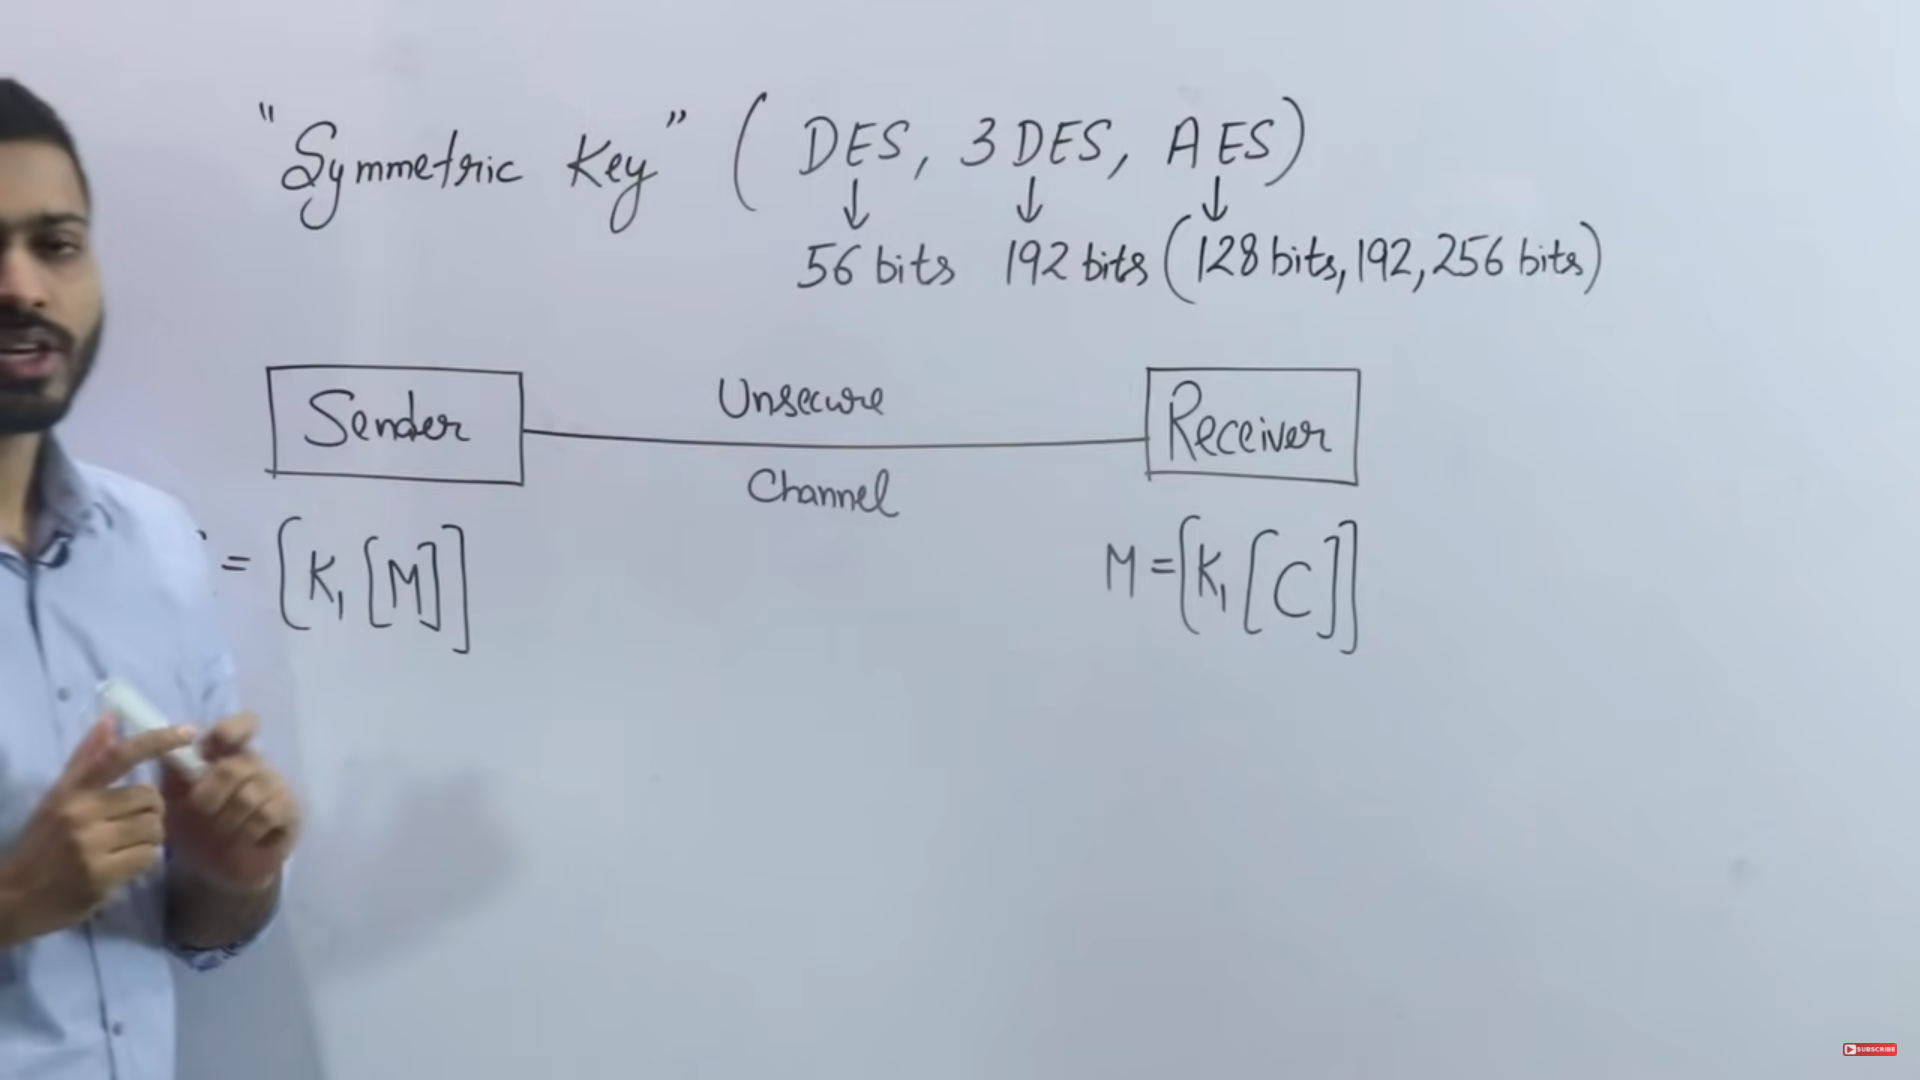 "Symmetric Key" ( DES, 3DES, AES)
56 bits 192 bits (128 bits, 192, 256 bits)
Sender
Unsecure
Channel
Receiver
= [K₁[M]]
M = [K₁[C]]
SUBSCRIBE